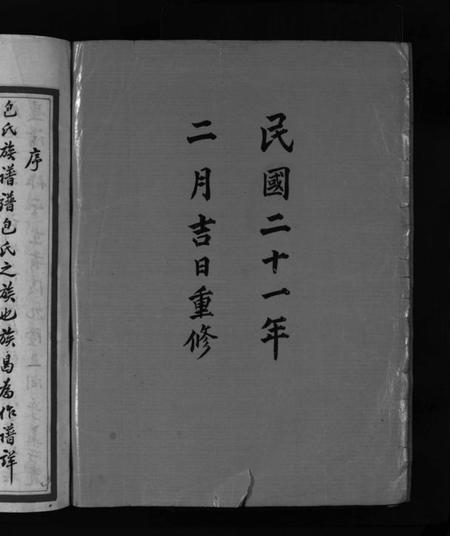 民國二十一年
二月吉日重修
序
包氏族譜譜包氏之族也族曷為作譜詳